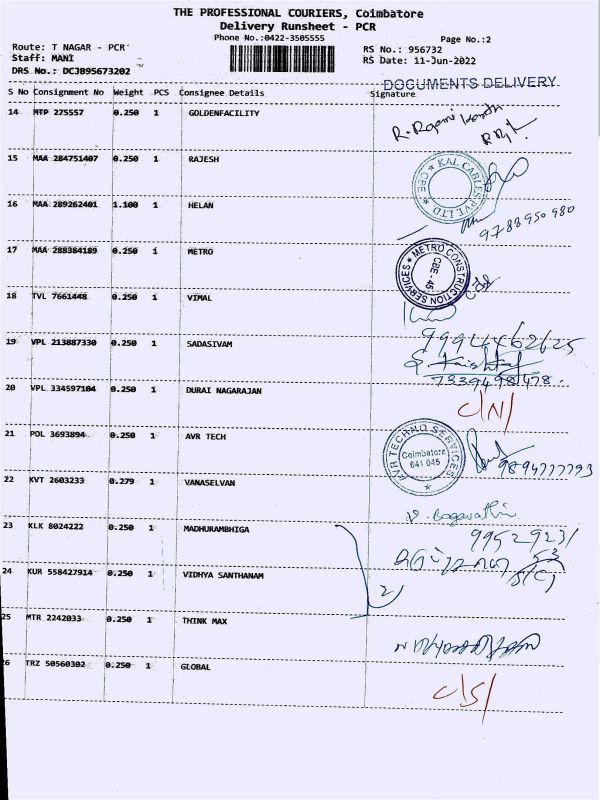 THE PROFESSIONAL COURIERS, Coimbatore
Delivery Runsheet - PCR
Phone No.:0422-3505555
Page No.:2
Route: T NAGAR - PCR
RS No.: 956732
Staff: MANI
RS Date: 11-Jun-2022
DRS No.: DCJB95673202
DOCUMENTS DELIVERY
S No Consignment No Weight PCS Consignee Details Signature
14 MTP 275557 0.250 1 GOLDENFACILITY
15 MAA 284751407 0.250 1 RAJESH
KAL CABLES PVT LTD CBE
16 MAA 289262401 1.100 1 HELAN
9788950980
17 MAA 288384189 0.250 1 METRO
METRO CONSTRUCTION SERVICES
CBE - 45
18 TVL 7661448 0.250 1 VIMAL
19 VPL 213887330 0.250 1 SADASIVAM
20 VPL 334597104 0.250 1 DURAI NAGARAJAN
C/N/
21 POL 3693894 0.250 1 AVR TECH
KVR TECHNO SERVICES
Coimbatore
641 045
22 KVT 2603233 0.279 1 VANASELVAN
23 KLK 8024222 0.250 1 MADHURAMBHIGA
24 KUR 558427914 0.250 1 VIDHYA SANTHANAM
2)
25 MTR 2242033 0.250 1 THINK MAX
26 TRZ 50560302 0.250 1 GLOBAL
C/S/